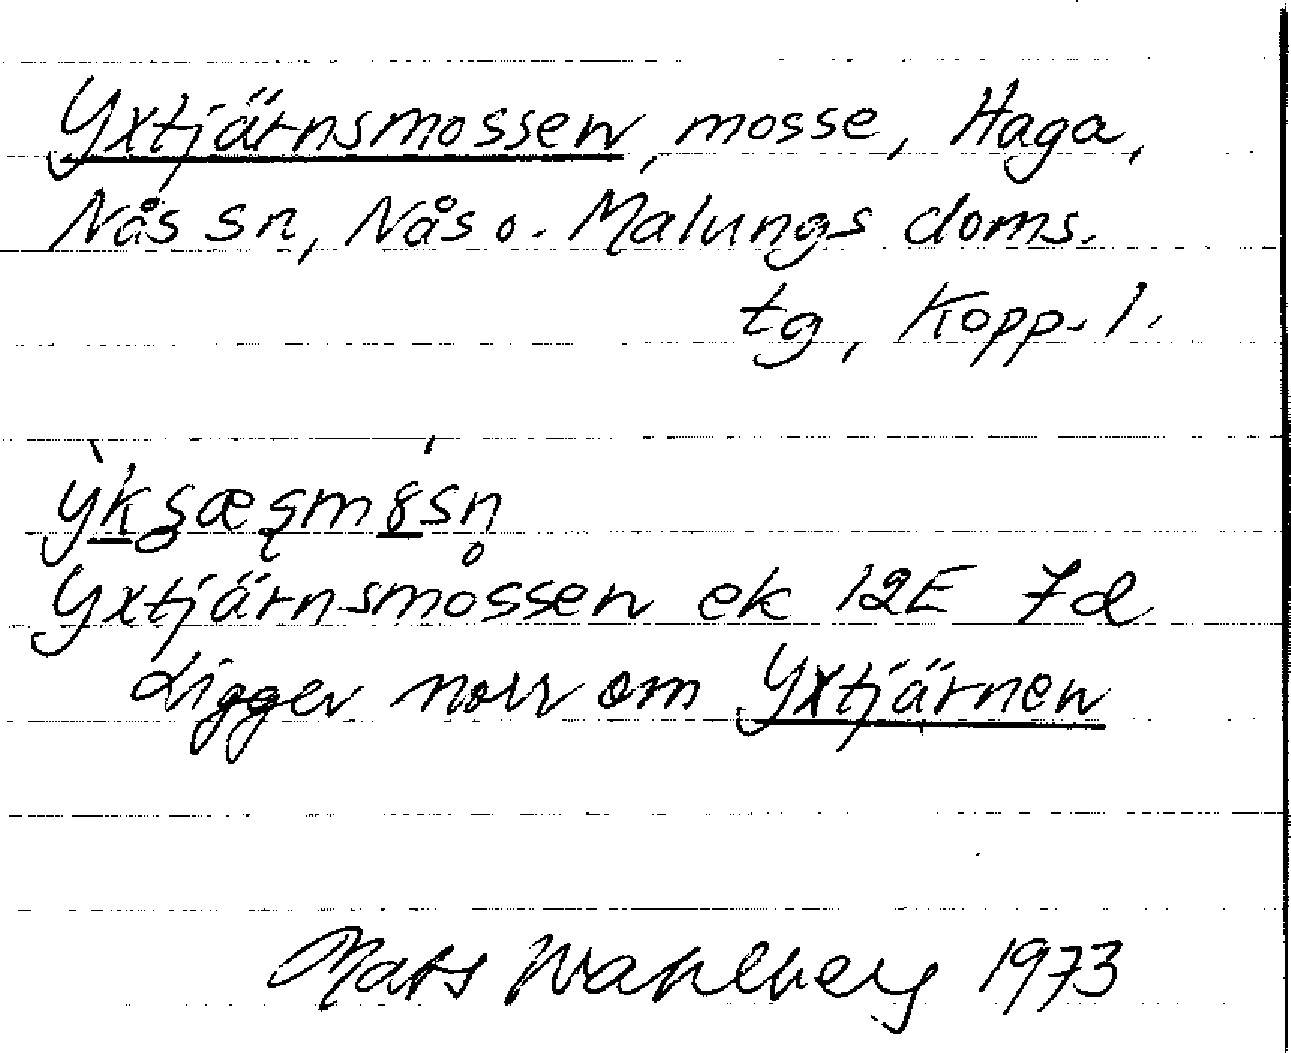 Yxtjärnsmossen, mosse, Haga,
Nås sn, Nås o. Malungs doms.
tg, Kopp. l.
Yxtjärnsmossen ek 12E 7d
Ligger norr om Yxtjärnen
Mats Wahlberg 1973